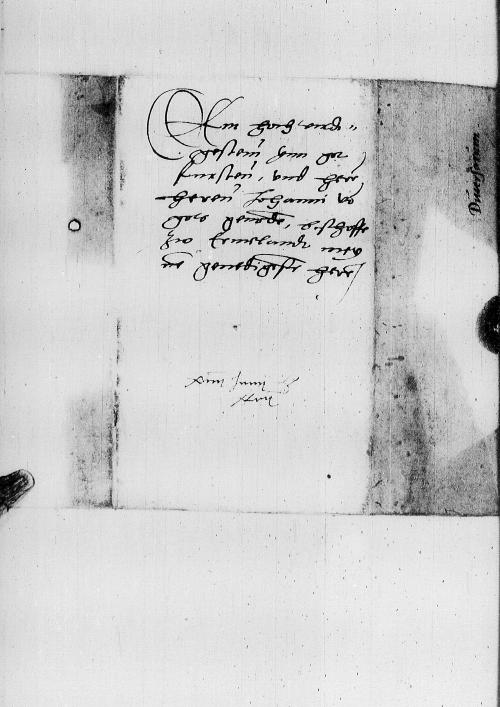 Dem hochwirdi„
gesten, ynn got
fursten, und hern
heren Johanni vo
gots genade, bischoffe
zw Ermelandt mey
ne genedigeste heren